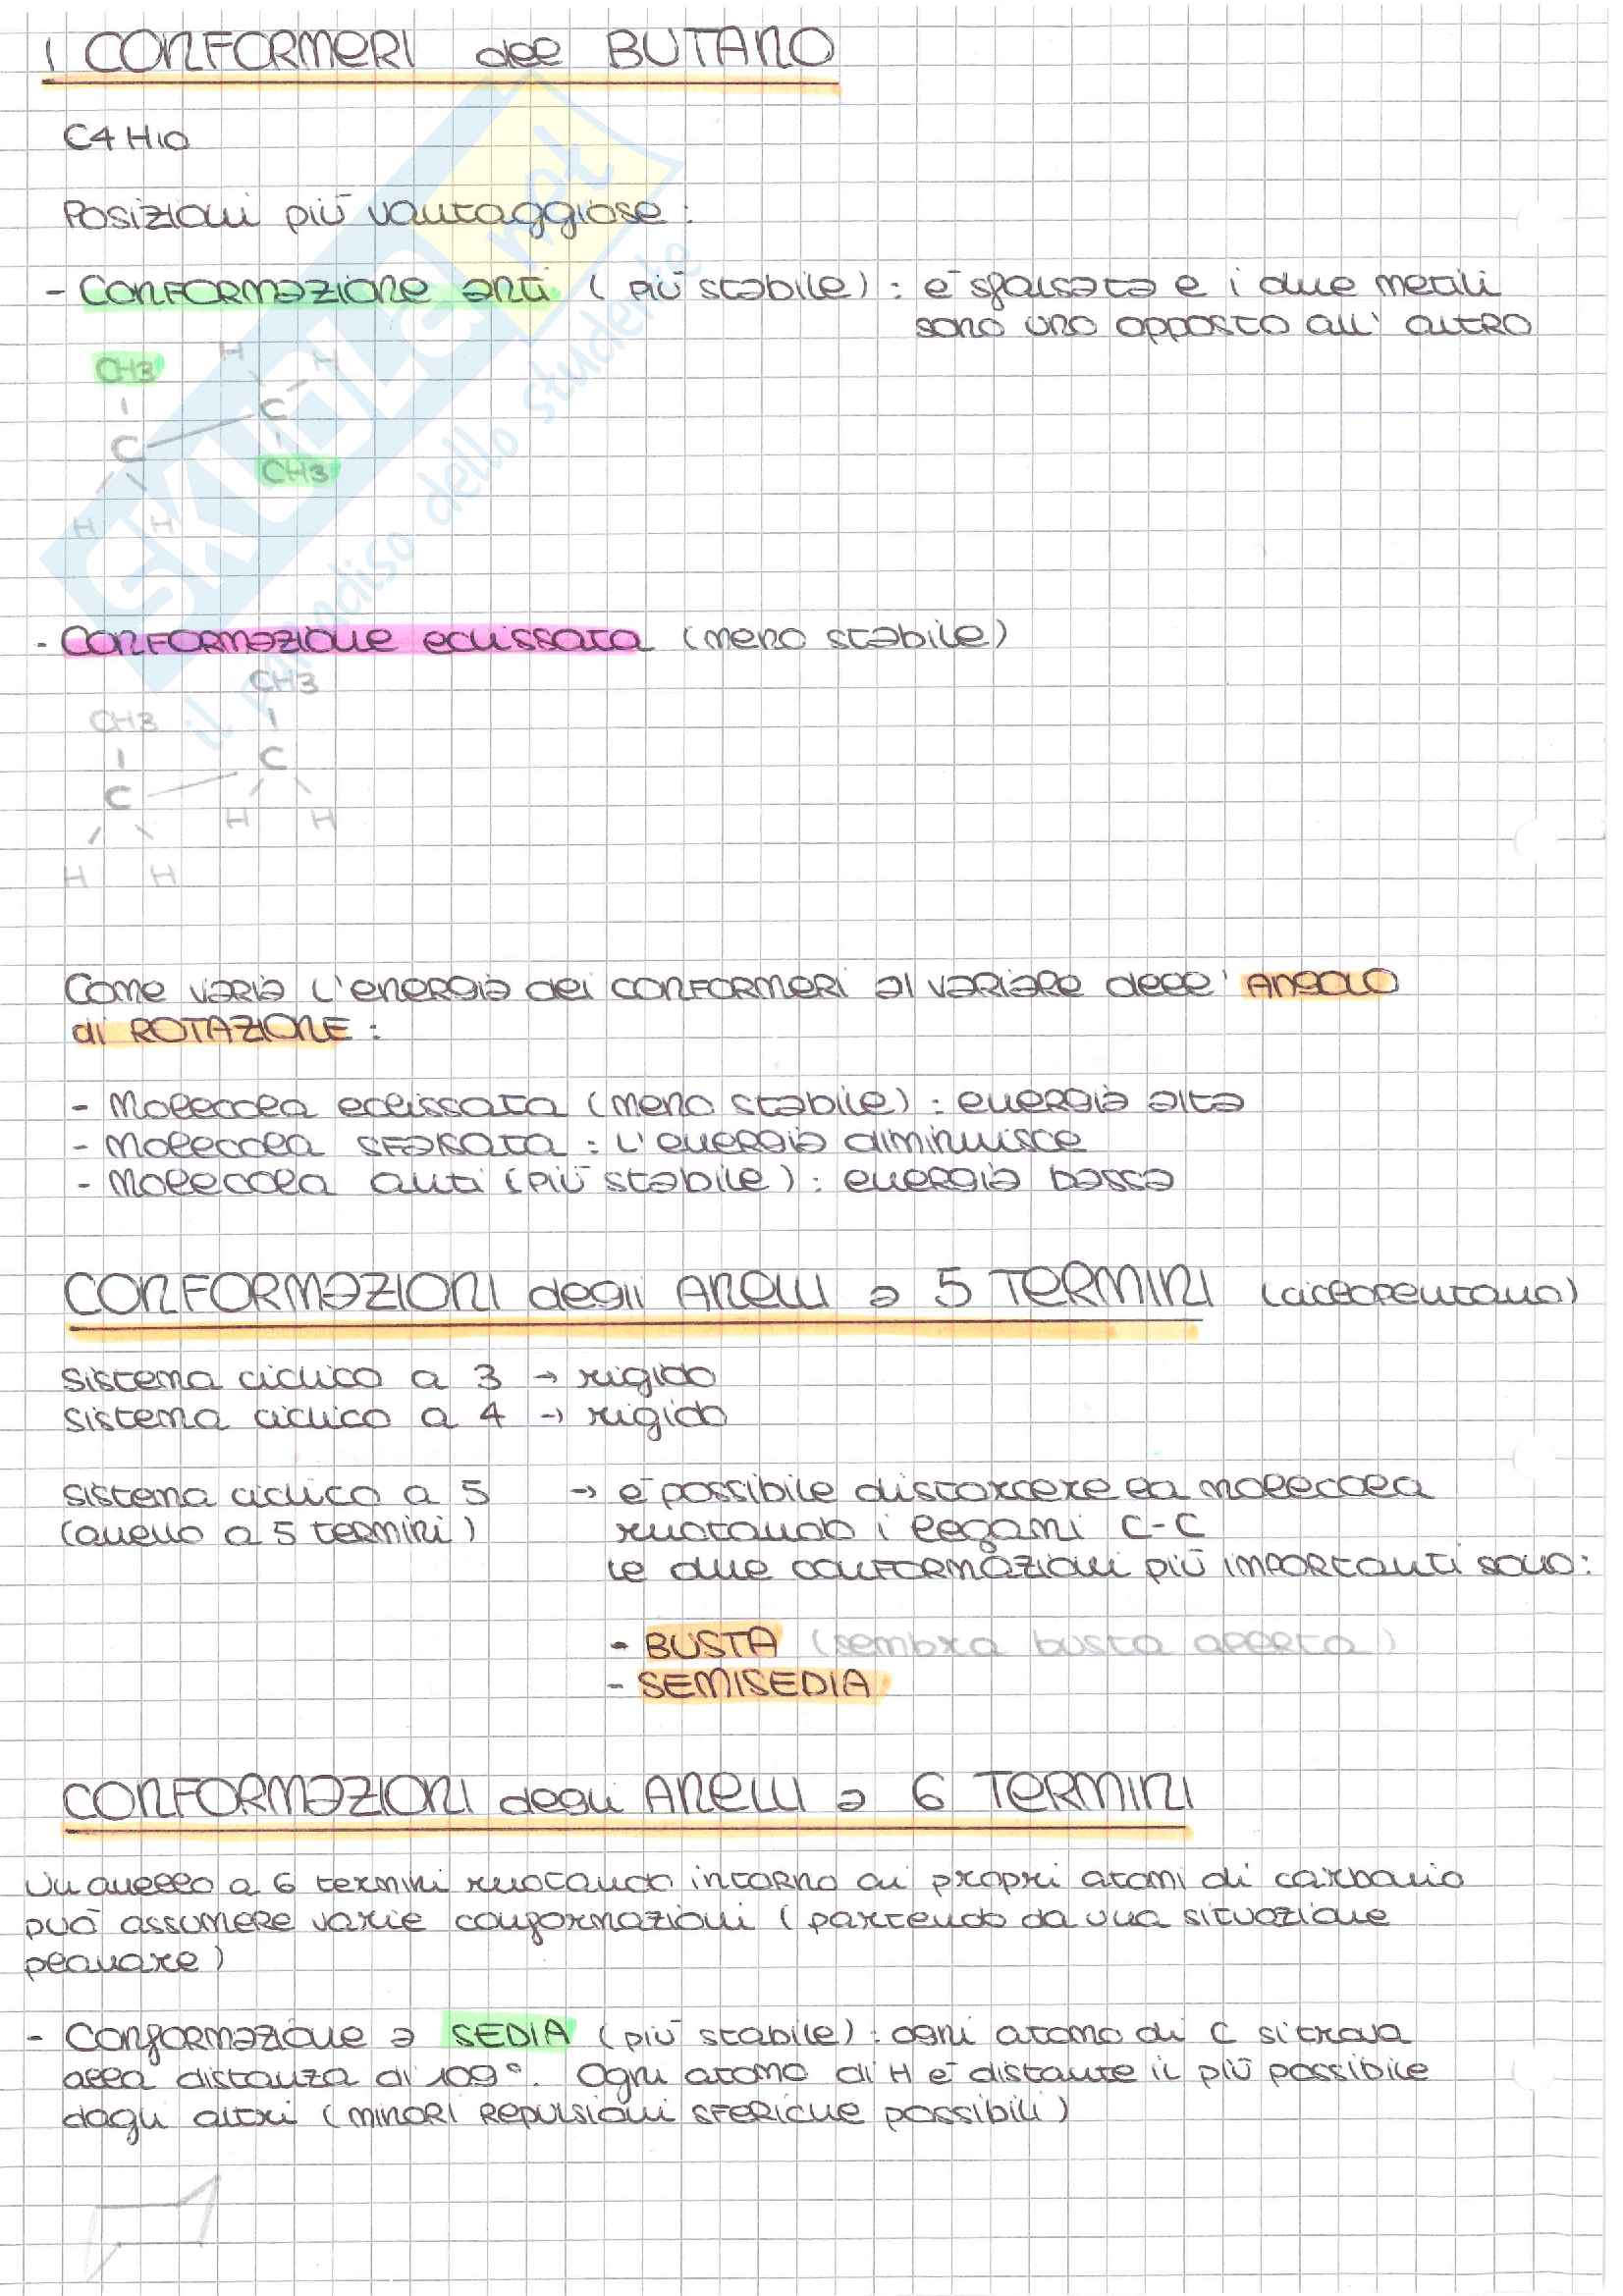 I CONFORMERI del BUTANO
C4H10
Posizioni più vantaggiose:
- Conformazione anti (più stabile): è sfalsata e i due metili
sono uno opposto all'altro
CH3 H H
C
C
CH3
H H
- Conformazione eclissata (meno stabile)
CH3
CH3
C
C
H H
H H
Come varia l'energia dei conformeri al variare dell'ANGOLO
di ROTAZIONE:
- Molecola eclissata (meno stabile): energia alta
- Molecola sfalsata: l'energia diminuisce
- Molecola anti (più stabile): energia bassa
CONFORMAZIONI degli Anelli a 5 TERMINI (ciclopentano)
Sistema ciclico a 3 → rigido
Sistema ciclico a 4 → rigido
Sistema ciclico a 5 → è possibile distorcere la molecola
(anello a 5 termini) ruotando i legami C-C
le due conformazioni più importanti sono:
- BUSTA (sembra busta aperta)
- SEMISEDIA
CONFORMAZIONI degli Anelli a 6 TERMINI
Un anello a 6 termini ruotando intorno ai propri atomi di carbonio
può assumere varie conformazioni (partendo da una situazione
planare)
- Conformazione a SEDIA (più stabile): ogni atomo di C si trova
alla distanza di 109°. Ogni atomo di H è distante il più possibile
dagli altri (minori repulsioni steriche possibili)
SKUOLA.net
il paradiso dello studente